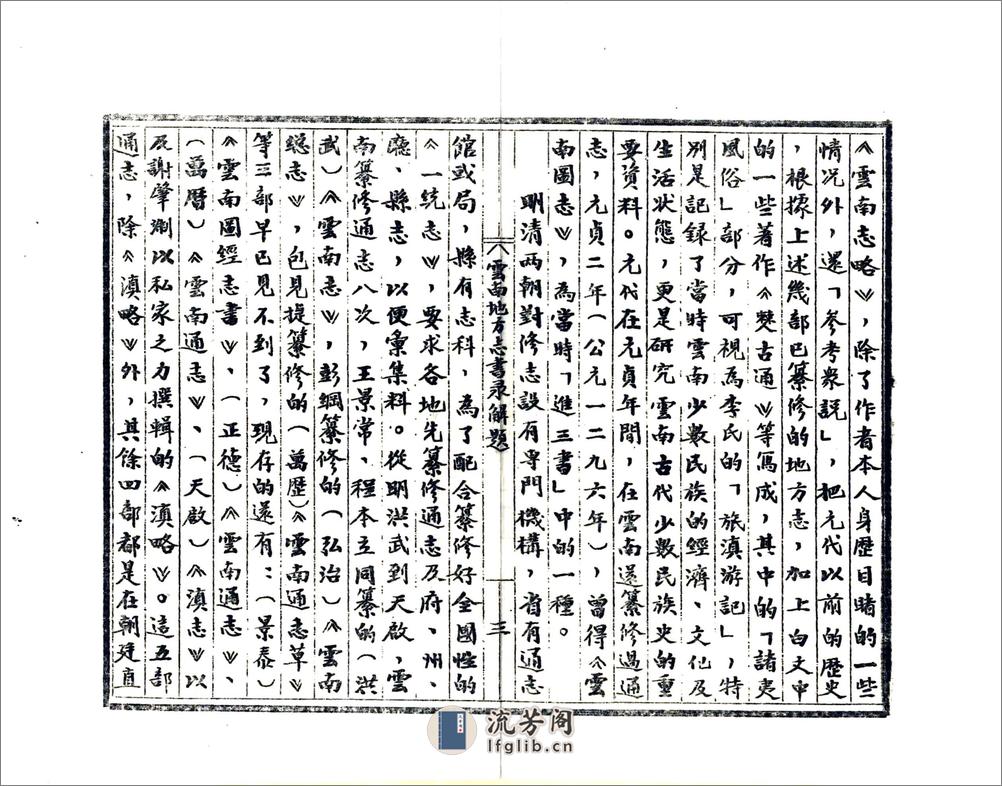 《雲南志略》，除了作者本人身歷目睹的一些
情况外，還「參考衆說」，把元代以前的歷史
，根據上述幾部已纂修的地方志，加上白文中
的一些著作《僰古通》等寫成，其中的「諸夷
風俗」部分，可視為李氏的「旅滇游記」，特
別是記録了當時雲南少數民族的經濟、文化及
生活狀態，更是研究雲南古代少數民族史的重
要資料。元代在元貞年間，在雲南還纂修過通
志，元貞二年（公元一二九六年），曾得《雲
南圖志》，為當時「進三書」中的一種。
明清两朝對修志設有専門機構，省有通志
《雲南地方志書录解題》
三
館或局，縣有志科，為了配合纂修好全國性的
《一統志》，要求各地先纂修通志及府、州、
廳、縣志，以便彙集料。從明洪武到天啟，雲
南纂修通志八次，王景常、程本立同纂的（洪
武）《雲南志》，彭綱纂修的（弘治）《雲南
總志》，包見捷纂修的（萬歷）《雲南通志草》
等三部早已見不到了，現存的還有：（景泰）
《雲南圖經志書》、（正德）《雲南通志》、
（萬曆）《雲南通志》、（天啟）《滇志》以
及謝肇淛以私家之力撰輯的《滇略》。這五部
通志，除《滇略》外，其餘四部都是在朝廷直
流芳阁
lfglib.cn